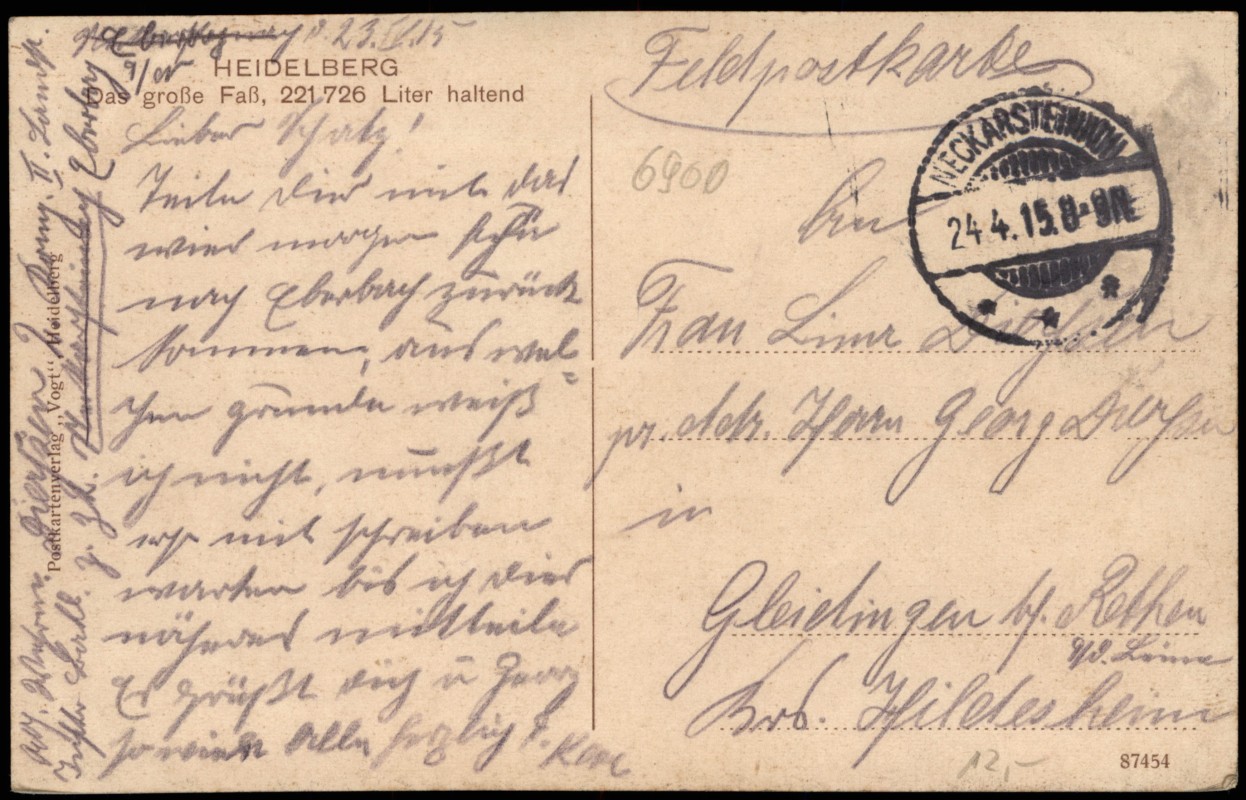 23.IV.15
HEIDELBERG
Das große Faß, 221726 Liter haltend
a/N
Lieber Schatz!
Teile dir mit das
wier morgen
nach Eberbach zurück
kommen, aus wel=
chen grunde weiß
ich nicht, mußt
mit schreiben
warten bis ich dies
näheres mitteile
Es grüßt dich u Georg
so wie Alle herzlich d. Karl
Postkartenverlag „Vogt" Heidelberg
II. Landst.
Eberbach
Feldpostkarte
6900
NECKARSTEINACH
24.4.15.8-9N.
An
Frau Lina
pr. Adr. Herrn Georg
in
Gleidingen bf. Rethen
a/d. Leine
Krs. Hildesheim
12,-
87454